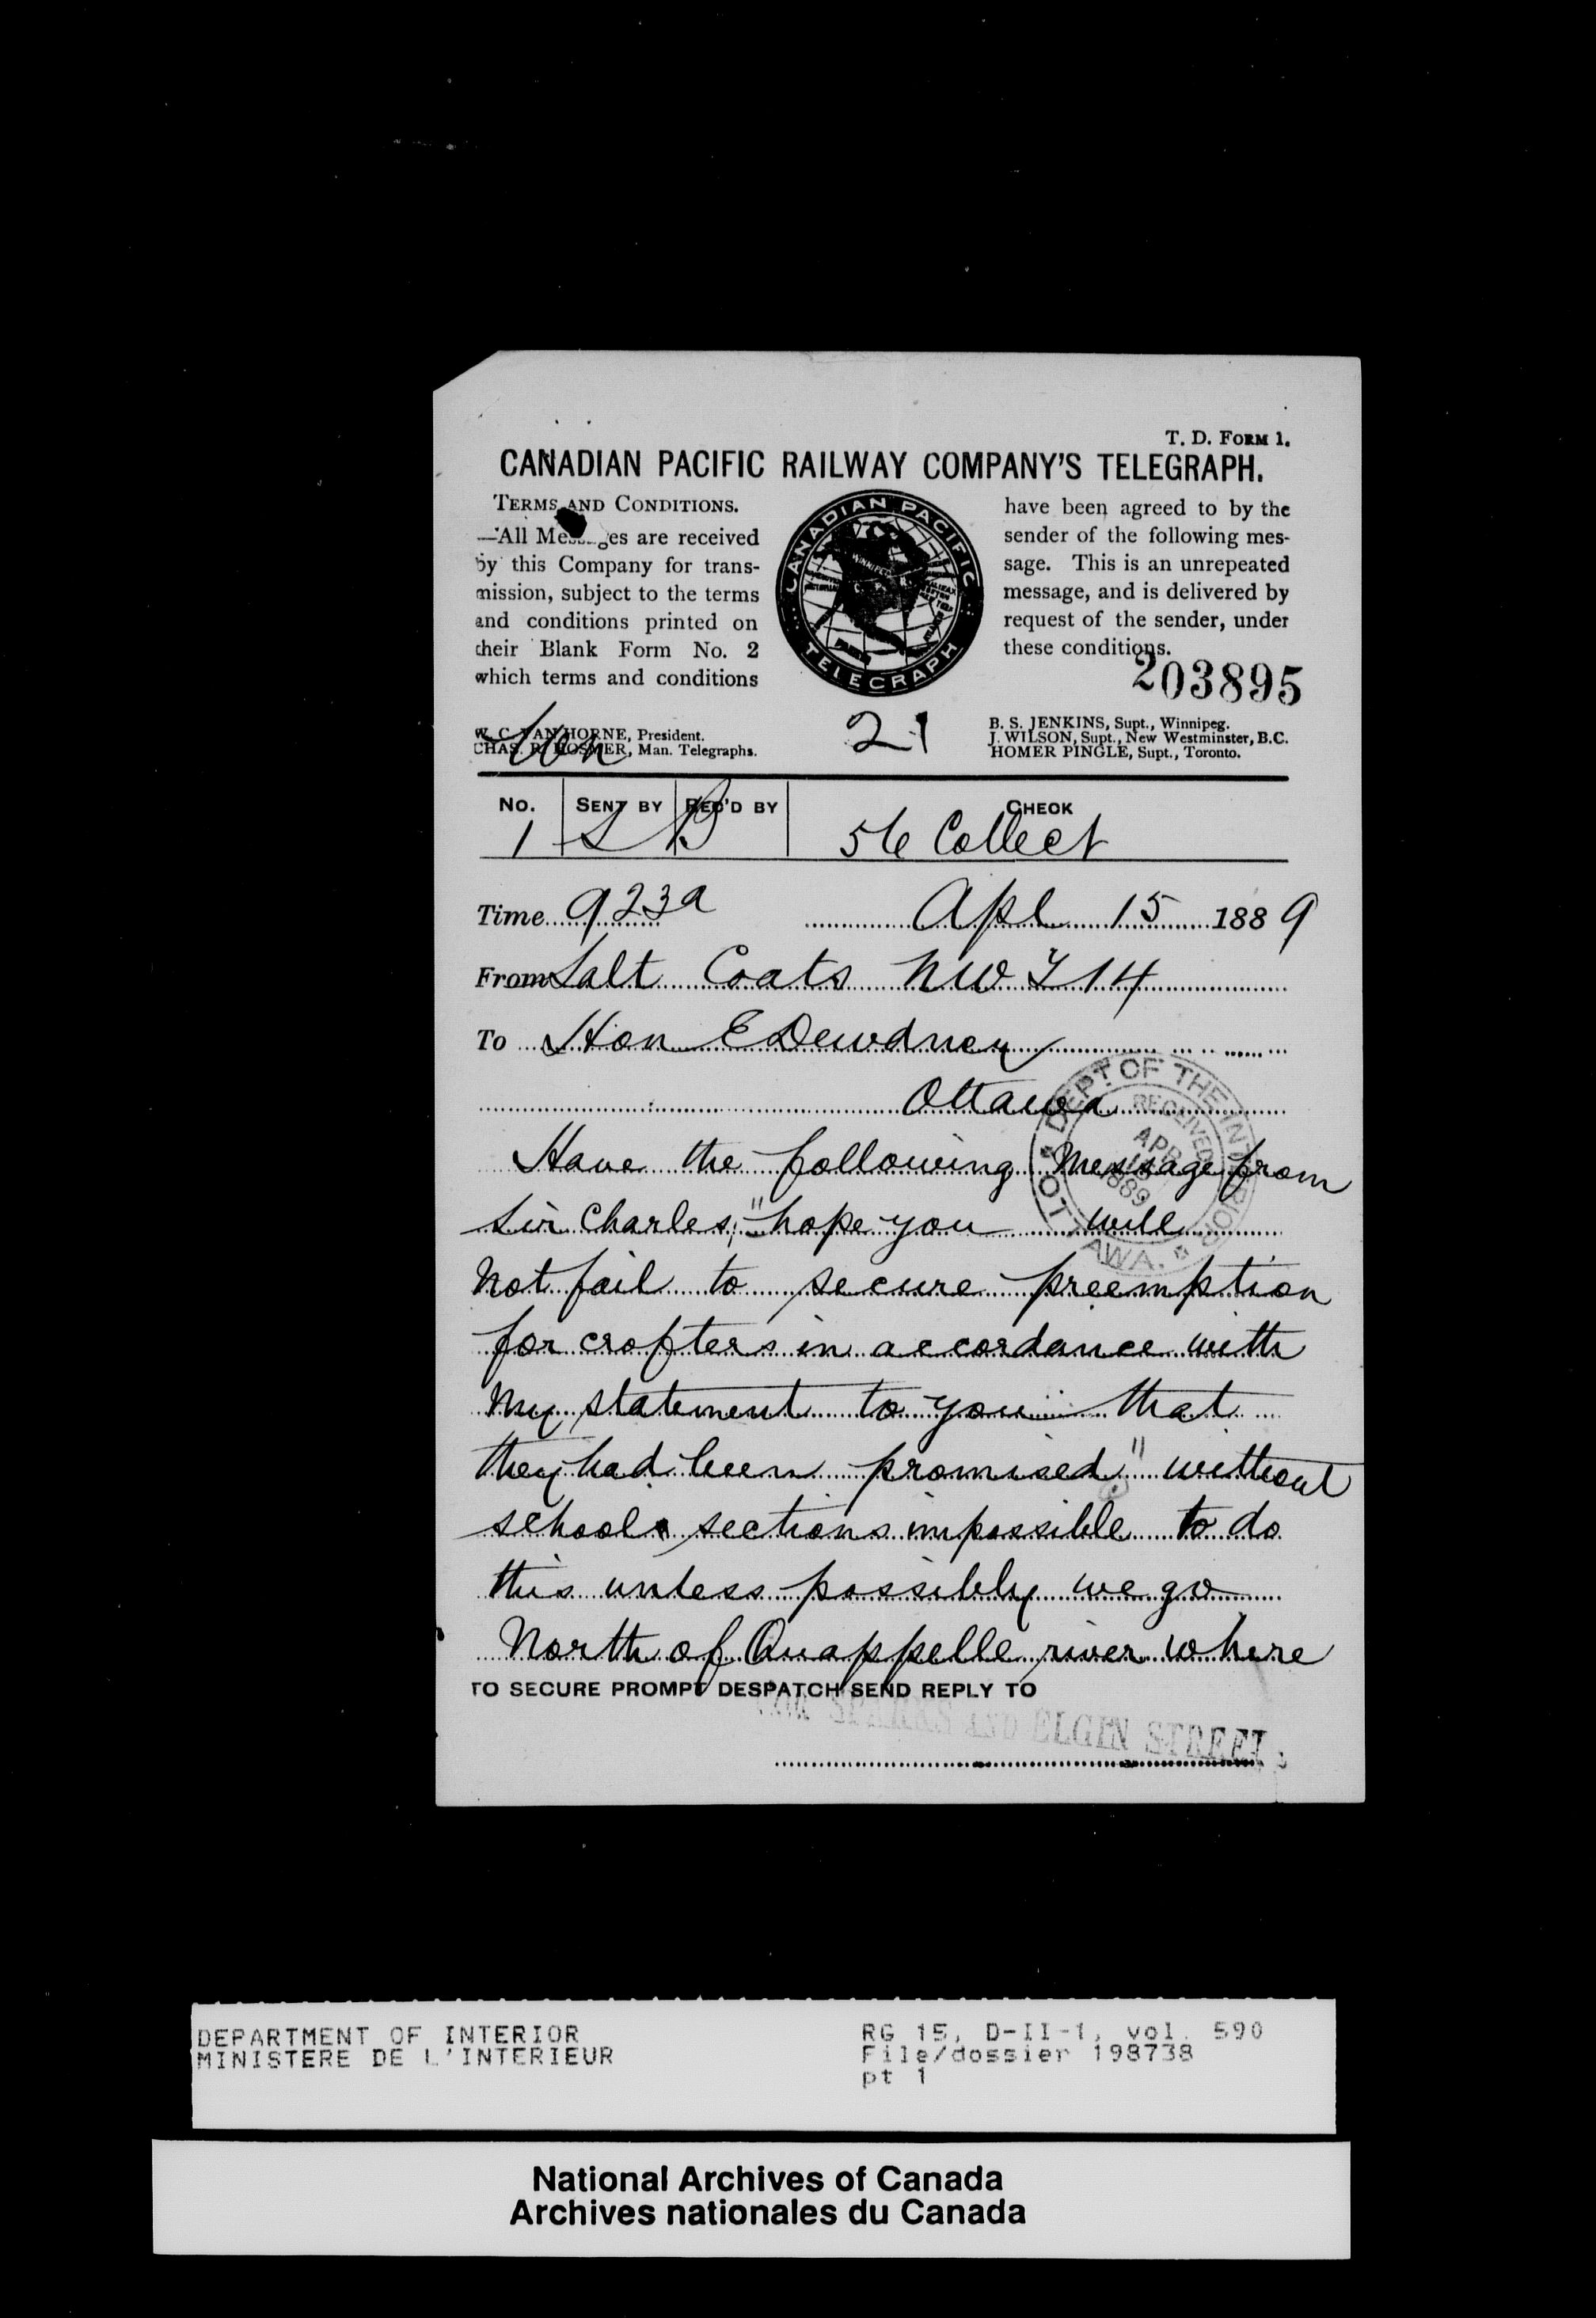 T. D. FORM 1.
CANADIAN PACIFIC RAILWAY COMPANY'S TELEGRAPH.
TERMS AND CONDITIONS.
—All Mes...ges are received
by this Company for trans-
mission, subject to the terms
and conditions printed on
their Blank Form No. 2
which terms and conditions
CANADIAN PACIFIC
WINNIPEG
TELEGRAPH
have been agreed to by the
sender of the following mes-
sage. This is an unrepeated
message, and is delivered by
request of the sender, under
these conditions.
203895
W. C. VAN HORNE, President.
CHAS. R. HOSMER, Man. Telegraphs.
21
B. S. JENKINS, Supt., Winnipeg.
J. WILSON, Supt., New Westminster, B.C.
HOMER PINGLE, Supt., Toronto.
No. SENT BY REC'D BY CHECK
1 S B 56 Collect
Time 923a Apl 15 1889
From Salt Coats NWT 14
To Hon E Dewdney
Ottawa
DEPT OF THE INTERIOR
OTTAWA.
RECEIVED
APR
1889
Have the following message from
Sir Charles; "hope you will
not fail to secure preemption
for crofters in accordance with
my statement to you that
they had been promised" without
school sections impossible to do
this unless possibly we go
North of Quappelle river where
TO SECURE PROMPT DESPATCH SEND REPLY TO
COR SPARKS AND ELGIN STREET.
DEPARTMENT OF INTERIOR
MINISTERE DE L'INTERIEUR
RG 15, D-II-1, vol. 590
File/dossier 198738
pt 1
National Archives of Canada
Archives nationales du Canada